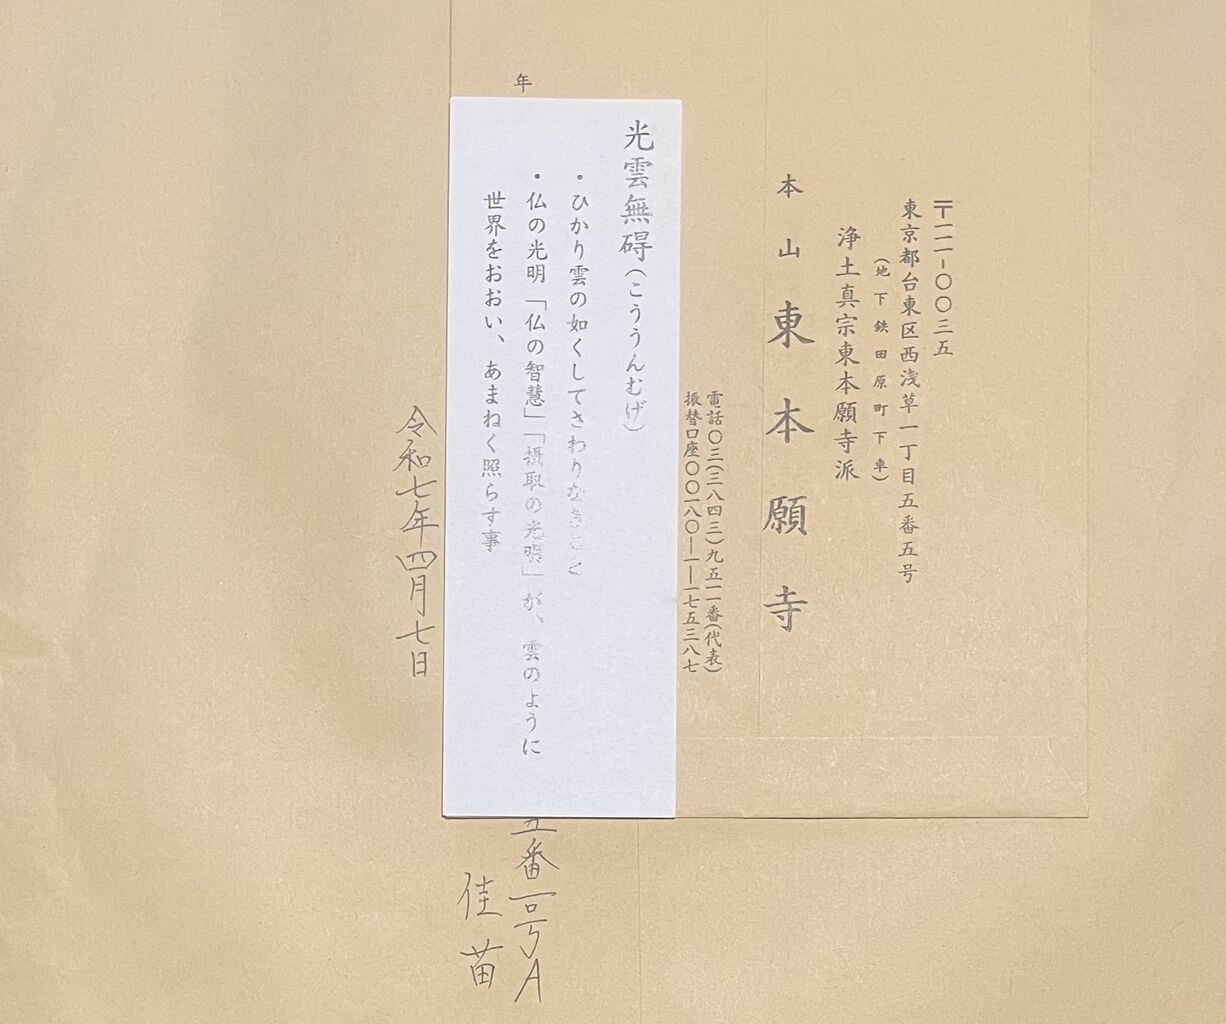 〒一一一-〇〇三五
東京都台東区西浅草一丁目五番五号
(地下鉄田原町下車)
浄土真宗東本願寺派
本山東本願寺
電話〇三(三八四三)九五一一番(代表)
振替口座〇〇一八〇―一―一七五三八七
光雲無碍(こううんむげ)
・ひかり雲の如くしてさわりなきこと
・仏の光明「仏の智慧」「摂取の光明」が、雲のように
世界をおおい、あまねく照らす事
年
五番一号A
佳苗
令和七年四月七日